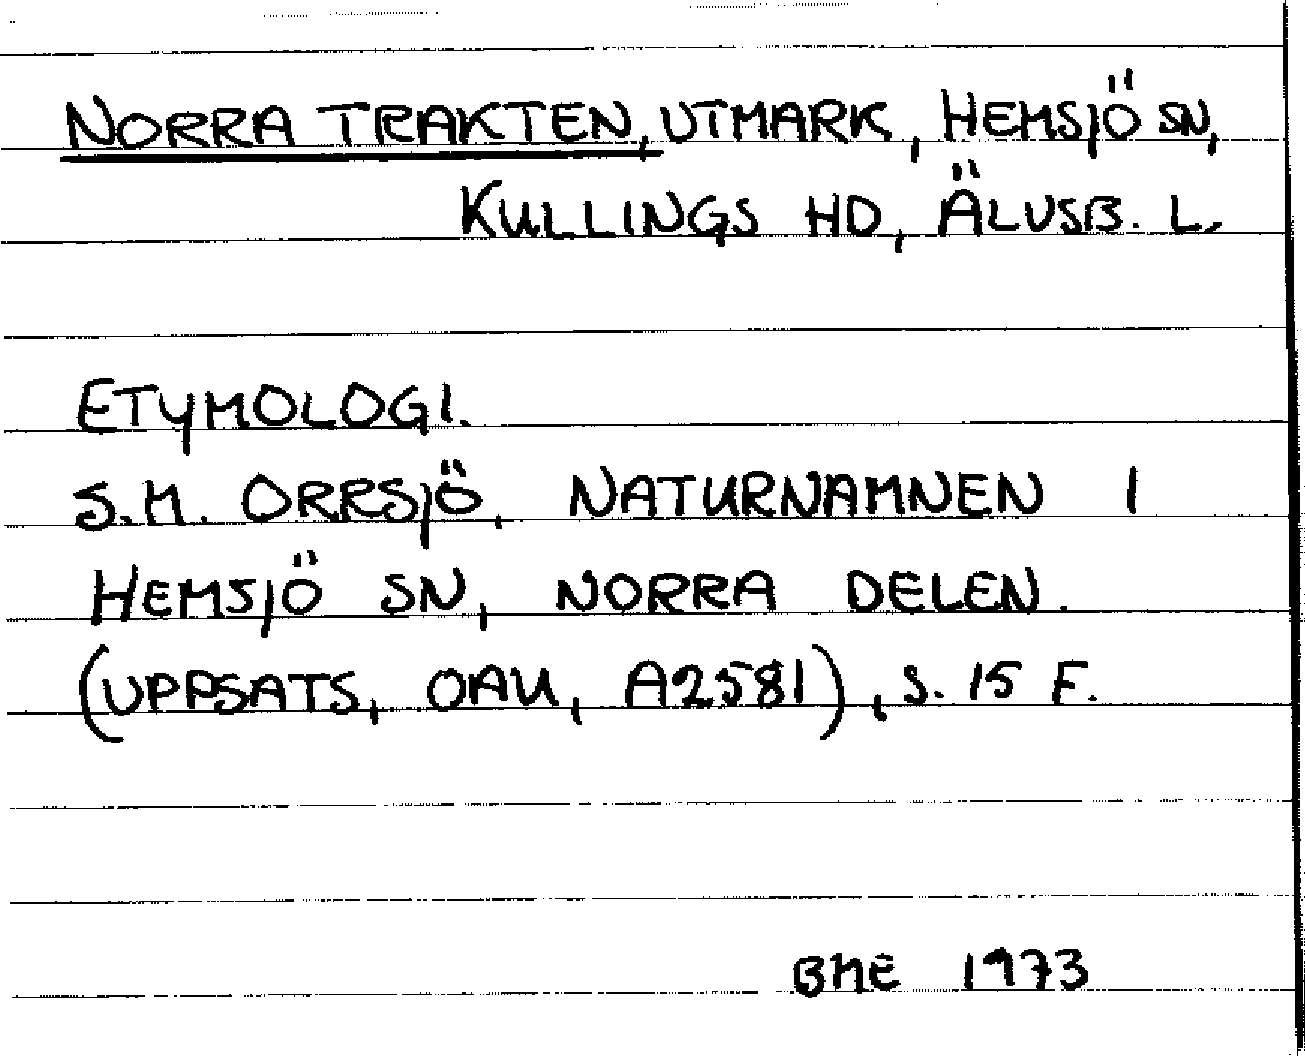 NORRA TRAKTEN, UTMARK, HEMSJÖ SN,
KULLINGS HD, ÄLVSB. L.
ETYMOLOGI.
S.M. ORRSJÖ, NATURNAMNEN I
HEMSJÖ SN, NORRA DELEN.
(UPPSATS, OAU, A2581), S. 15 F.
BME 1973